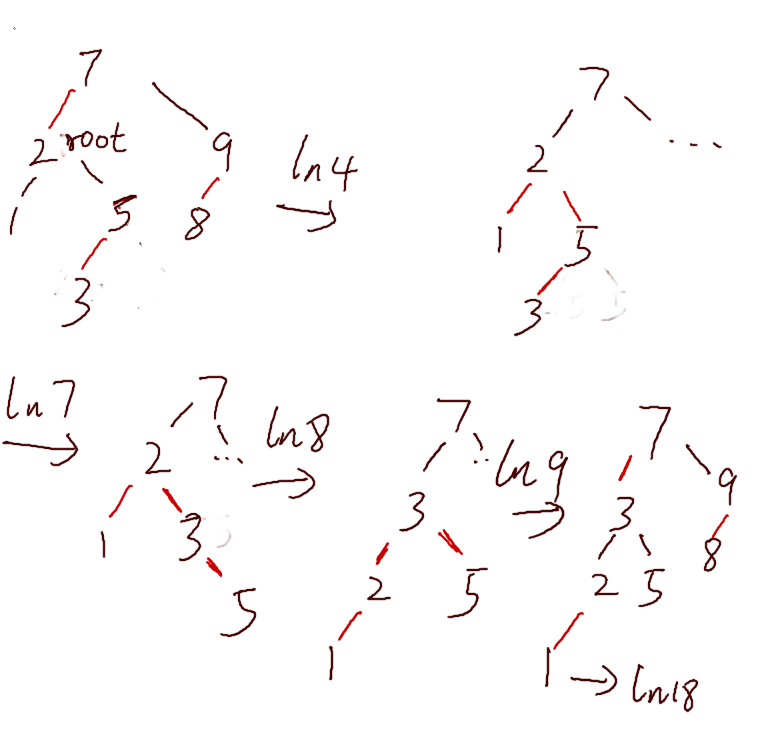 7
2 root 9
1 5 8
3
ln4
7
2 ...
1 5
3
ln7
7
2 ...
1 3
5
ln8
7
3 ...
2 5
1
ln9
7
3 9
2 5 8
1
ln18